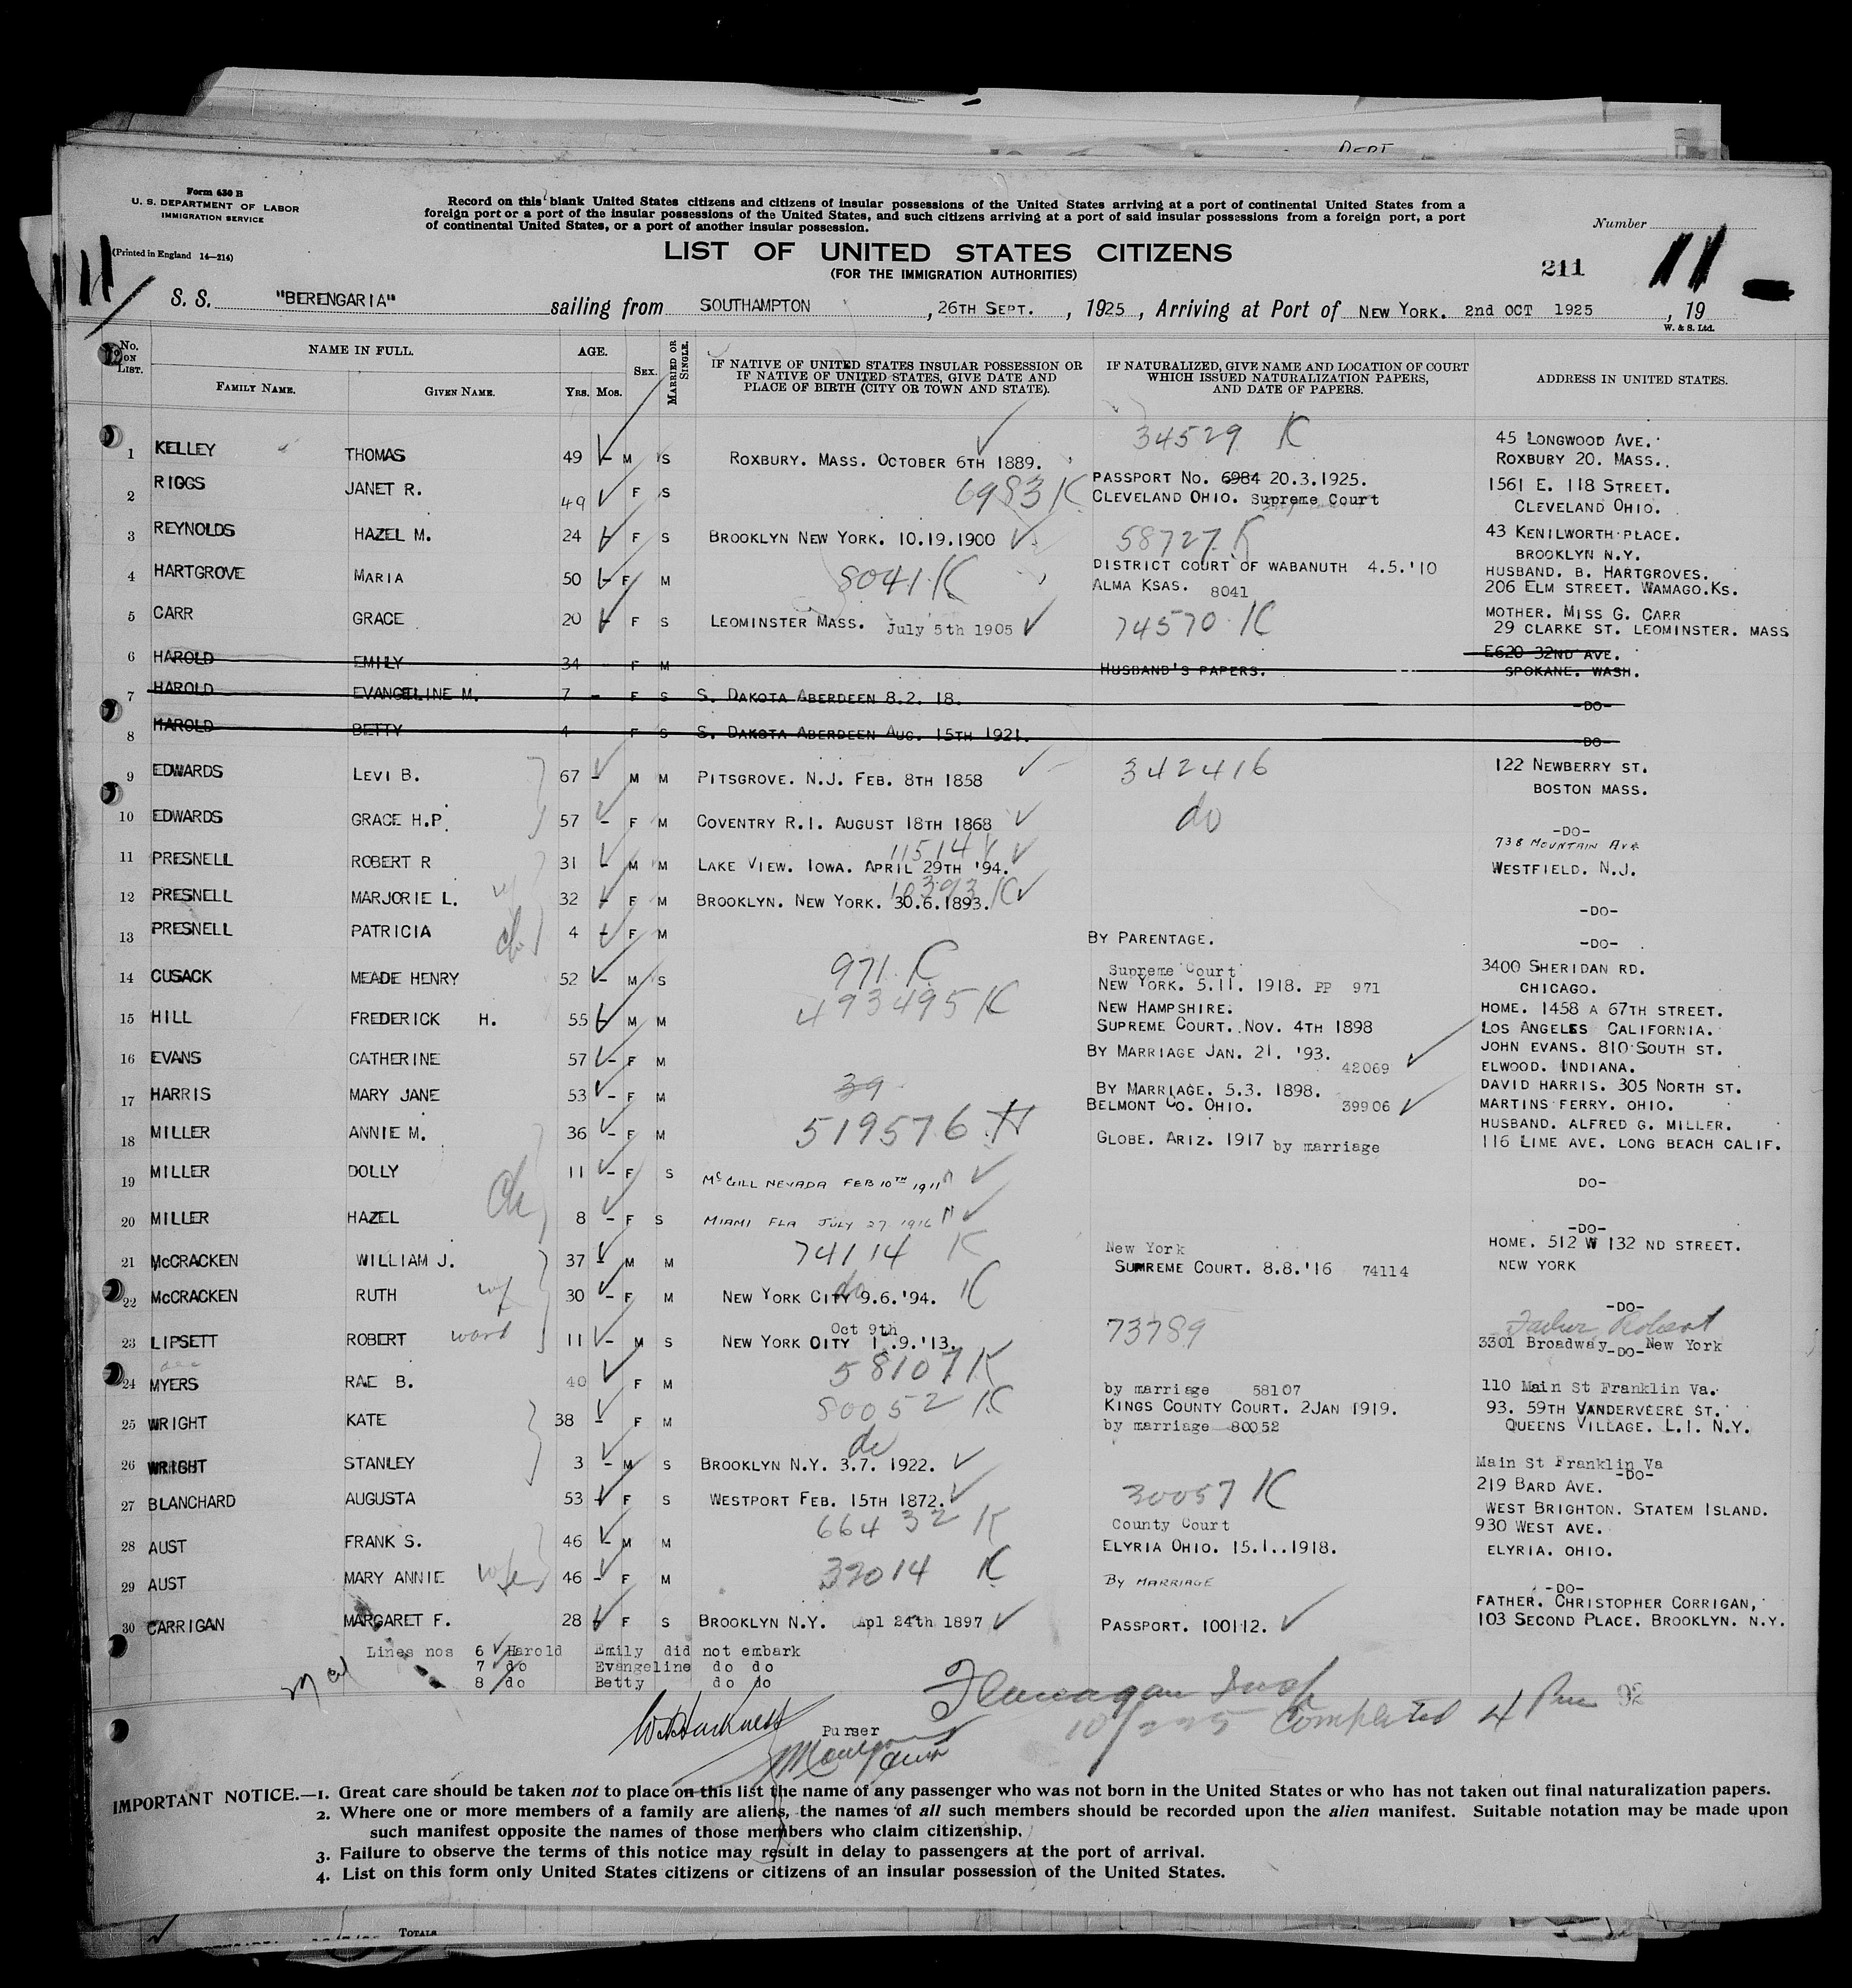 DEPT
Form 630 B
U. S. DEPARTMENT OF LABOR
IMMIGRATION SERVICE
(Printed in England 14—214)
Record on this blank United States citizens and citizens of insular possessions of the United States arriving at a port of continental United States from a
foreign port or a port of the insular possessions of the United States, and such citizens arriving at a port of said insular possessions from a foreign port, a port
of continental United States, or a port of another insular possession.
Number
LIST OF UNITED STATES CITIZENS
(FOR THE IMMIGRATION AUTHORITIES)
11
211
11
S. S. "BERENGARIA" sailing from SOUTHAMPTON , 26TH SEPT. , 1925 , Arriving at Port of NEW YORK. 2nd OCT 1925 , 19
W. & S. Ltd.
No. ON LIST.
NAME IN FULL.
FAMILY NAME. GIVEN NAME.
AGE.
YRS. MOS.
SEX.
MARRIED OR SINGLE.
IF NATIVE OF UNITED STATES INSULAR POSSESSION OR
IF NATIVE OF UNITED STATES, GIVE DATE AND
PLACE OF BIRTH (CITY OR TOWN AND STATE).
IF NATURALIZED, GIVE NAME AND LOCATION OF COURT
WHICH ISSUED NATURALIZATION PAPERS,
AND DATE OF PAPERS.
ADDRESS IN UNITED STATES.
34529 K 45 LONGWOOD AVE.
1 KELLEY THOMAS 49 - M S ROXBURY. MASS. OCTOBER 6TH 1889. ROXBURY 20. MASS..
PASSPORT NO. 6984 20.3.1925. 1561 E. 118 STREET.
2 RIGGS JANET R. 49 F S 6983 K CLEVELAND OHIO. Supreme Court CLEVELAND OHIO.
3 REYNOLDS HAZEL M. 24 - F S BROOKLYN NEW YORK. 10.19.1900 58727 K 43 KENILWORTH PLACE.
BROOKLYN N.Y.
4 HARTGROVE MARIA 50 - F M 8041 K DISTRICT COURT OF WABANUTH 4.5.'10 HUSBAND. B. HARTGROVES.
ALMA KSAS. 8041 206 ELM STREET. WAMAGO.KS.
5 CARR GRACE 20 - F S LEOMINSTER MASS. July 5th 1905 74570 K MOTHER. MISS G. CARR
29 CLARKE ST. LEOMINSTER. MASS
6 HAROLD EMILY 34 F M HUSBAND'S PAPERS. E620 32ND AVE.
SPOKANE. WASH.
7 HAROLD EVANGELINE M. 7 - F S S. DAKOTA ABERDEEN 8.2. 18. -DO-
8 HAROLD BETTY 4 F S S. DAKOTA ABERDEEN AUG. 15TH 1921. -DO-
9 EDWARDS LEVI B. 67 - M M PITSGROVE. N.J. FEB. 8TH 1858 342416 122 NEWBERRY ST.
BOSTON MASS.
10 EDWARDS GRACE H.P. 57 - F M COVENTRY R.I. AUGUST 18TH 1868 do -DO-
11514 738 MOUNTAIN AVE
11 PRESNELL ROBERT R 31 - M M LAKE VIEW. IOWA. APRIL 29TH '94. WESTFIELD. N.J.
10393 K
12 PRESNELL MARJORIE L. 32 - F M BROOKLYN. NEW YORK. 30.6.1893. -DO-
13 PRESNELL PATRICIA 4 - F M BY PARENTAGE. -DO-
14 CUSACK MEADE HENRY 52 - M S 971 K Supreme Court 3400 SHERIDAN RD.
NEW YORK. 5.11. 1918. PP 971 CHICAGO.
15 HILL FREDERICK H. 55 M M 493495 K NEW HAMPSHIRE. HOME. 1458 A 67TH STREET.
SUPREME COURT. NOV. 4TH 1898 LOS ANGELES CALIFORNIA.
16 EVANS CATHERINE 57 - F M BY MARRIAGE JAN. 21. '93. JOHN EVANS. 810 SOUTH ST.
42069 ELWOOD. INDIANA.
17 HARRIS MARY JANE 53 - F M 39 BY MARRIAGE. 5.3. 1898. DAVID HARRIS. 305 NORTH ST.
BELMONT CO. OHIO. 39906 MARTINS FERRY. OHIO.
18 MILLER ANNIE M. 36 - F M 519576 GLOBE. ARIZ. 1917 by marriage HUSBAND. ALFRED G. MILLER.
116 LIME AVE. LONG BEACH CALIF.
19 MILLER DOLLY ch 11 - F S McGILL NEVADA FEB 10TH 1911 DO-
20 MILLER HAZEL 8 - F S MIAMI FLA JULY 27 1916 -DO-
21 McCRACKEN WILLIAM J. 37 - M M 74114 K New York HOME. 512 W 132 ND STREET.
SUMREME COURT. 8.8.'16 74114 NEW YORK
22 McCRACKEN RUTH wf 30 - F M NEW YORK CITY 9.6.'94. do K -DO-
Oct 9th Father Robert
23 LIPSETT ROBERT ward 11 - M S NEW YORK CITY 1 .9.'13. 73789 3301 Broadway -DO- New York
24 MYERS RAE B. 40 F M 58107 K by marriage 58107 110 Main St Franklin Va.
25 WRIGHT KATE 38 - F M 80052 K KINGS COUNTY COURT. 2JAN 1919. 93. 59TH VANDERVEERE ST.
by marriage 80052 QUEENS VILLAGE. L.I. N.Y.
do
26 WRIGHT STANLEY 3 - M S BROOKLYN N.Y. 3.7. 1922. Main St Franklin Va
-DO-
27 BLANCHARD AUGUSTA 53 - F S WESTPORT FEB. 15TH 1872. 30057 K 219 BARD AVE.
WEST BRIGHTON. STATEM ISLAND.
28 AUST FRANK S. 46 - M M 66432 K County Court 930 WEST AVE.
ELYRIA OHIO. 15.1..1918. ELYRIA. OHIO.
29 AUST MARY ANNIE wife 46 - F M 39014 K BY MARRIAGE -DO-
30 CARRIGAN MARGARET F. 28 - F S BROOKLYN N.Y. Apl 24th 1897 PASSPORT. 100112. FATHER. CHRISTOPHER CORRIGAN,
103 SECOND PLACE. BROOKLYN. N.Y.
Lines nos 6 Harold Emily did not embark
7 do Evangeline do do
8 do Betty do do
Flanagan Insp
Purser
Completed 4 Pm 92
IMPORTANT NOTICE.—1. Great care should be taken not to place on this list the name of any passenger who was not born in the United States or who has not taken out final naturalization papers.
2. Where one or more members of a family are aliens, the names of all such members should be recorded upon the alien manifest. Suitable notation may be made upon
such manifest opposite the names of those members who claim citizenship.
3. Failure to observe the terms of this notice may result in delay to passengers at the port of arrival.
4. List on this form only United States citizens or citizens of an insular possession of the United States.
TOTALS